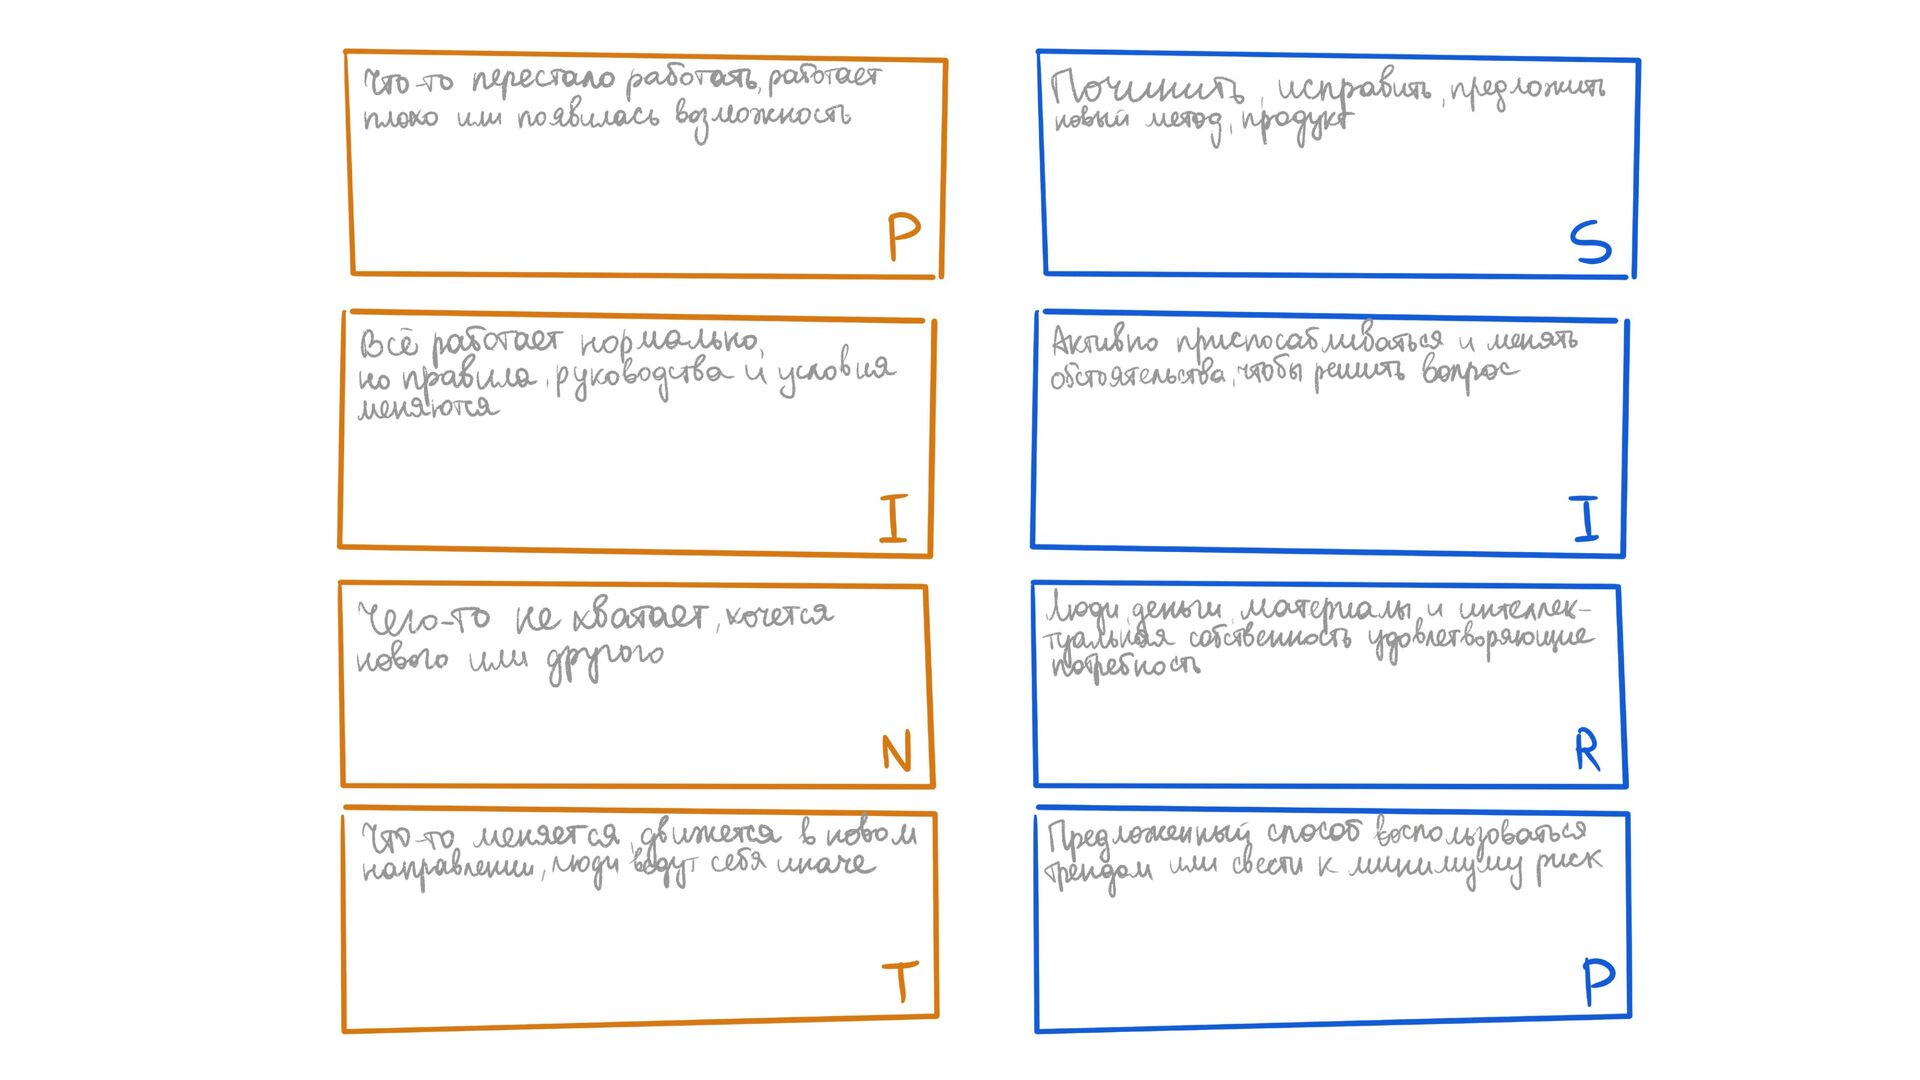 Что-то перестало работать, работает
плохо или появилась возможность
P
Починить, исправить, предложить
новый метод, продукт
S
Всё работает нормально,
но правила, руководства и условия
меняются
I
Активно приспосабливаться и менять
обстоятельства, чтобы решить вопрос
I
Чего-то не хватает, хочется
нового или другого
N
Люди, деньги, материалы, и интеллек-
туальная собственность удовлетворяющие
потребность
R
Что-то меняется, движется в новом
направлении, люди ведут себя иначе
T
Предложенный способ воспользоваться
трендом или свести к минимуму риск
P